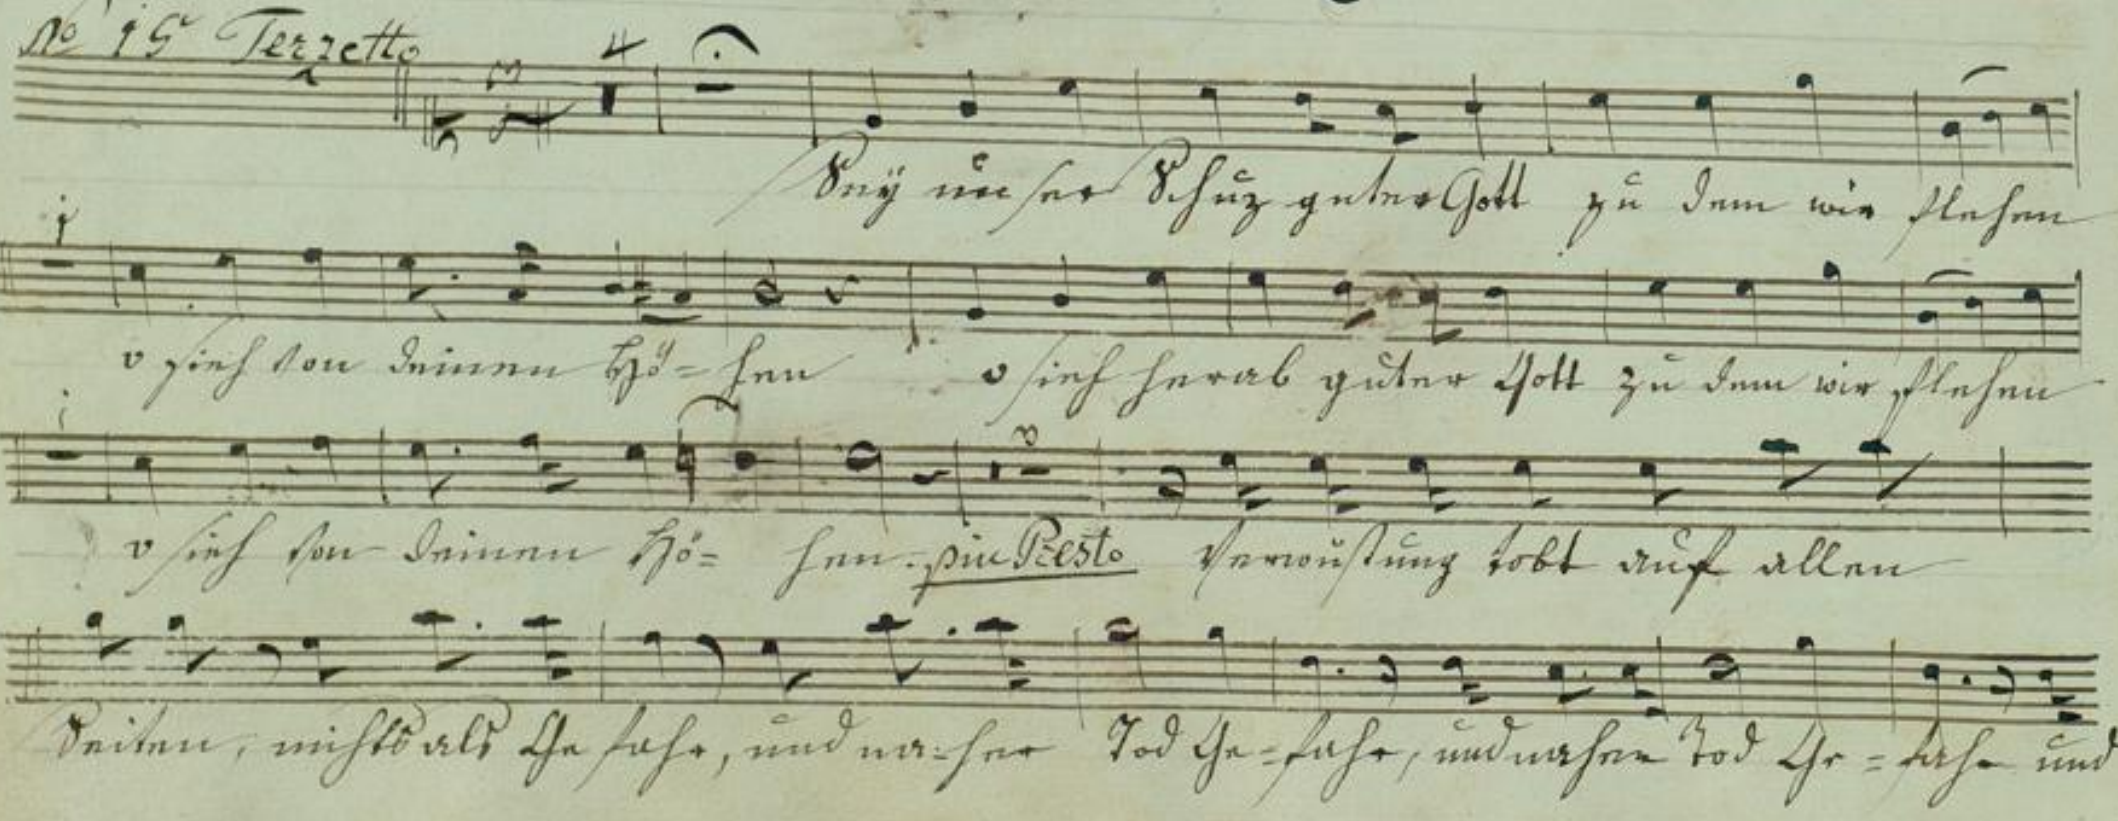 No 15 Terzetto
4
Seÿ unser Schuz guter Gott zu dem wir flehen
1
o sieh von deinen Hö=hen o sieh herab guter Gott zu dem wir flehen
1
o sieh von deinen Hö= hen. piu Presto Verwüstung tobt auf allen
Seiten, nichts als Gefahr, und na=her Tod Ge=fahr, und naher Tod Ge=fahr und